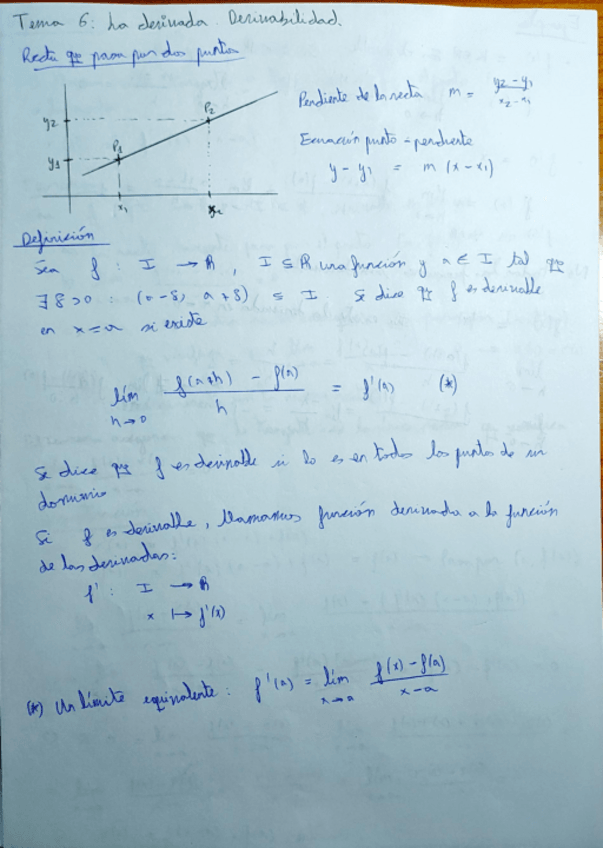 Tema 6: La derivada. Derivabilidad.
Recta q pasa por dos puntos
y2
y1
P1
P2
x1
x2
Pendiente de la recta m = (y2 - y1)/(x2 - x1)
Ecuación punto-pendiente
y - y1 = m (x - x1)
Definición
Sea f : I → R, I ⊆ R una función y a ∈ I tal que
∃ δ > 0 : (a - δ, a + δ) ⊆ I Se dice q f es derivable
en x = a si existe
lím h→0 (f(a+h) - f(a))/h = f'(a) (*)
Se dice q f es derivable si lo es en todos los puntos de su
dominio
Si f es derivable, llamamos función derivada a la función
de las derivadas:
f' : I → R
x ↦ f'(x)
(*) Un límite equivalente: f'(a) = lím x→a (f(x) - f(a))/(x - a)